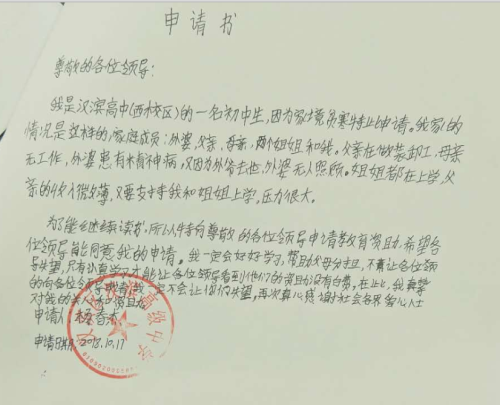 申请书
尊敬的各位领导:
我是汉滨高中(西校区)的一名初中生,因为家境贫寒特此申请。我家的
情况是这样的,家庭成员:外婆,父亲,母亲,两个姐姐和我。父亲在做装卸工,母亲
无工作,外婆患有精神病,又因为外爷去世,外婆无人照顾。姐姐都在上学,父
亲的收入很微薄,又要支持我和姐姐上学,压力很大。
为了能继续读书,所以特向尊敬的各位领导申请教育资助,希望各
位领导能同意我的申请。我一定会好好学习,帮助父母分担,不辜让各位领
导失望,只有认真学习才能让各位领导看到他们的资助没有白费。在此,我真挚
的向各位领导 我一定不会让 失望,再次真心感谢社会各界爱心人士
对我的
申请人:杨
申请日期:2018.10.17
高级中学